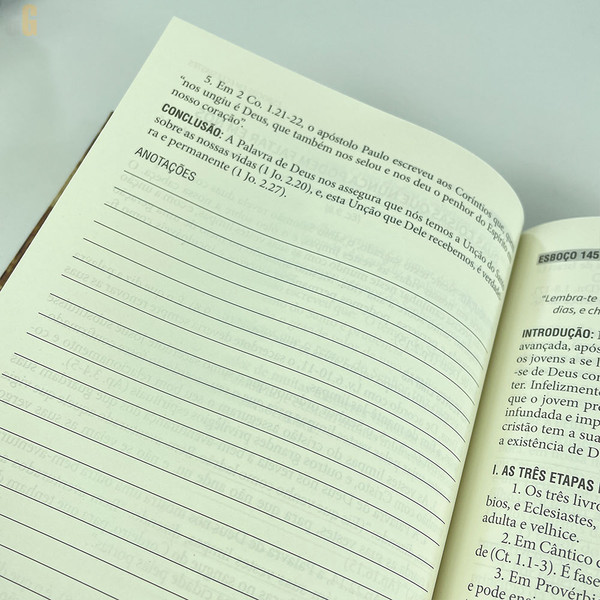 G
5. Em 2 Co. 1.21-22, o apóstolo Paulo escreveu aos Coríntios que
"nos ungiu é Deus, que também nos selou e nos deu o penhor do Espírito
nosso coração".
CONCLUSÃO: A Palavra de Deus nos assegura que nós temos a Unção do
sobre as nossas vidas (1 Jo. 2.20), e, esta Unção que Dele recebemos, é
ra e permanente (1 Jo. 2.27).
ANOTAÇÕES
ESBOÇO 145
"Lembra-te
dias, e
INTRODUÇÃO:
avançada, após
os jovens a se
-se de Deus
ter. Infelizment
que o jovem
infundada e
cristão tem a sua
a existência de
I. AS TRÊS ETAPAS
1. Os três
bios, e Eclesiastes,
adulta e velhice.
2. Em Cântico
de (Ct. 1.1-3). É fase
3. Em Provérbi
e pode